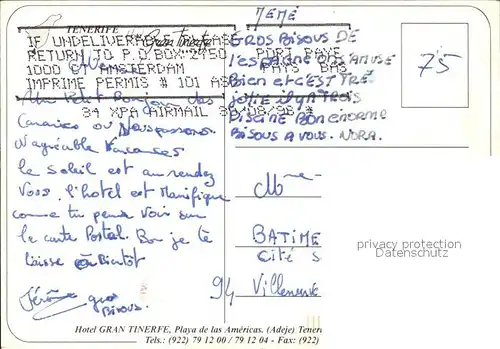 TENERIFE
IF UNDELIVERABLE PLEASE
RETURN TO P.O.BOX 2450 PORT PAYE
1000 CT AMSTERDAM PAYS BAS
IMPRIME PERMIS # 101 AS
84 XPA AIRMAIL
MEMÉ
GROS BISOUS DE
l'espagne ons'amuse
Bien et c'EST TRÉ
JOLIE il y A TROIS
PISCINE BON ENORME
BISOUS A VOUS. NORA.
75
Gran Tinerfe
Un Petit Bonjour des
Canaries ou Nous passons
d'agréable Vacances
le soleil est au rendez
Vous. l'hotel est Manifique
comme tu peux Voir sur
la carte Postal. Bon je te
laisse à Bientot
Jérôme gros
BISOUS.
Mme
BATIME
Cité S
94 Villeneuve
privacy protection
Datenschutz
Hotel GRAN TINERFE, Playa de las Américas. (Adeje) Teneri
Tels.: (922) 79 12 00 / 79 12 04 - Fax: (922)